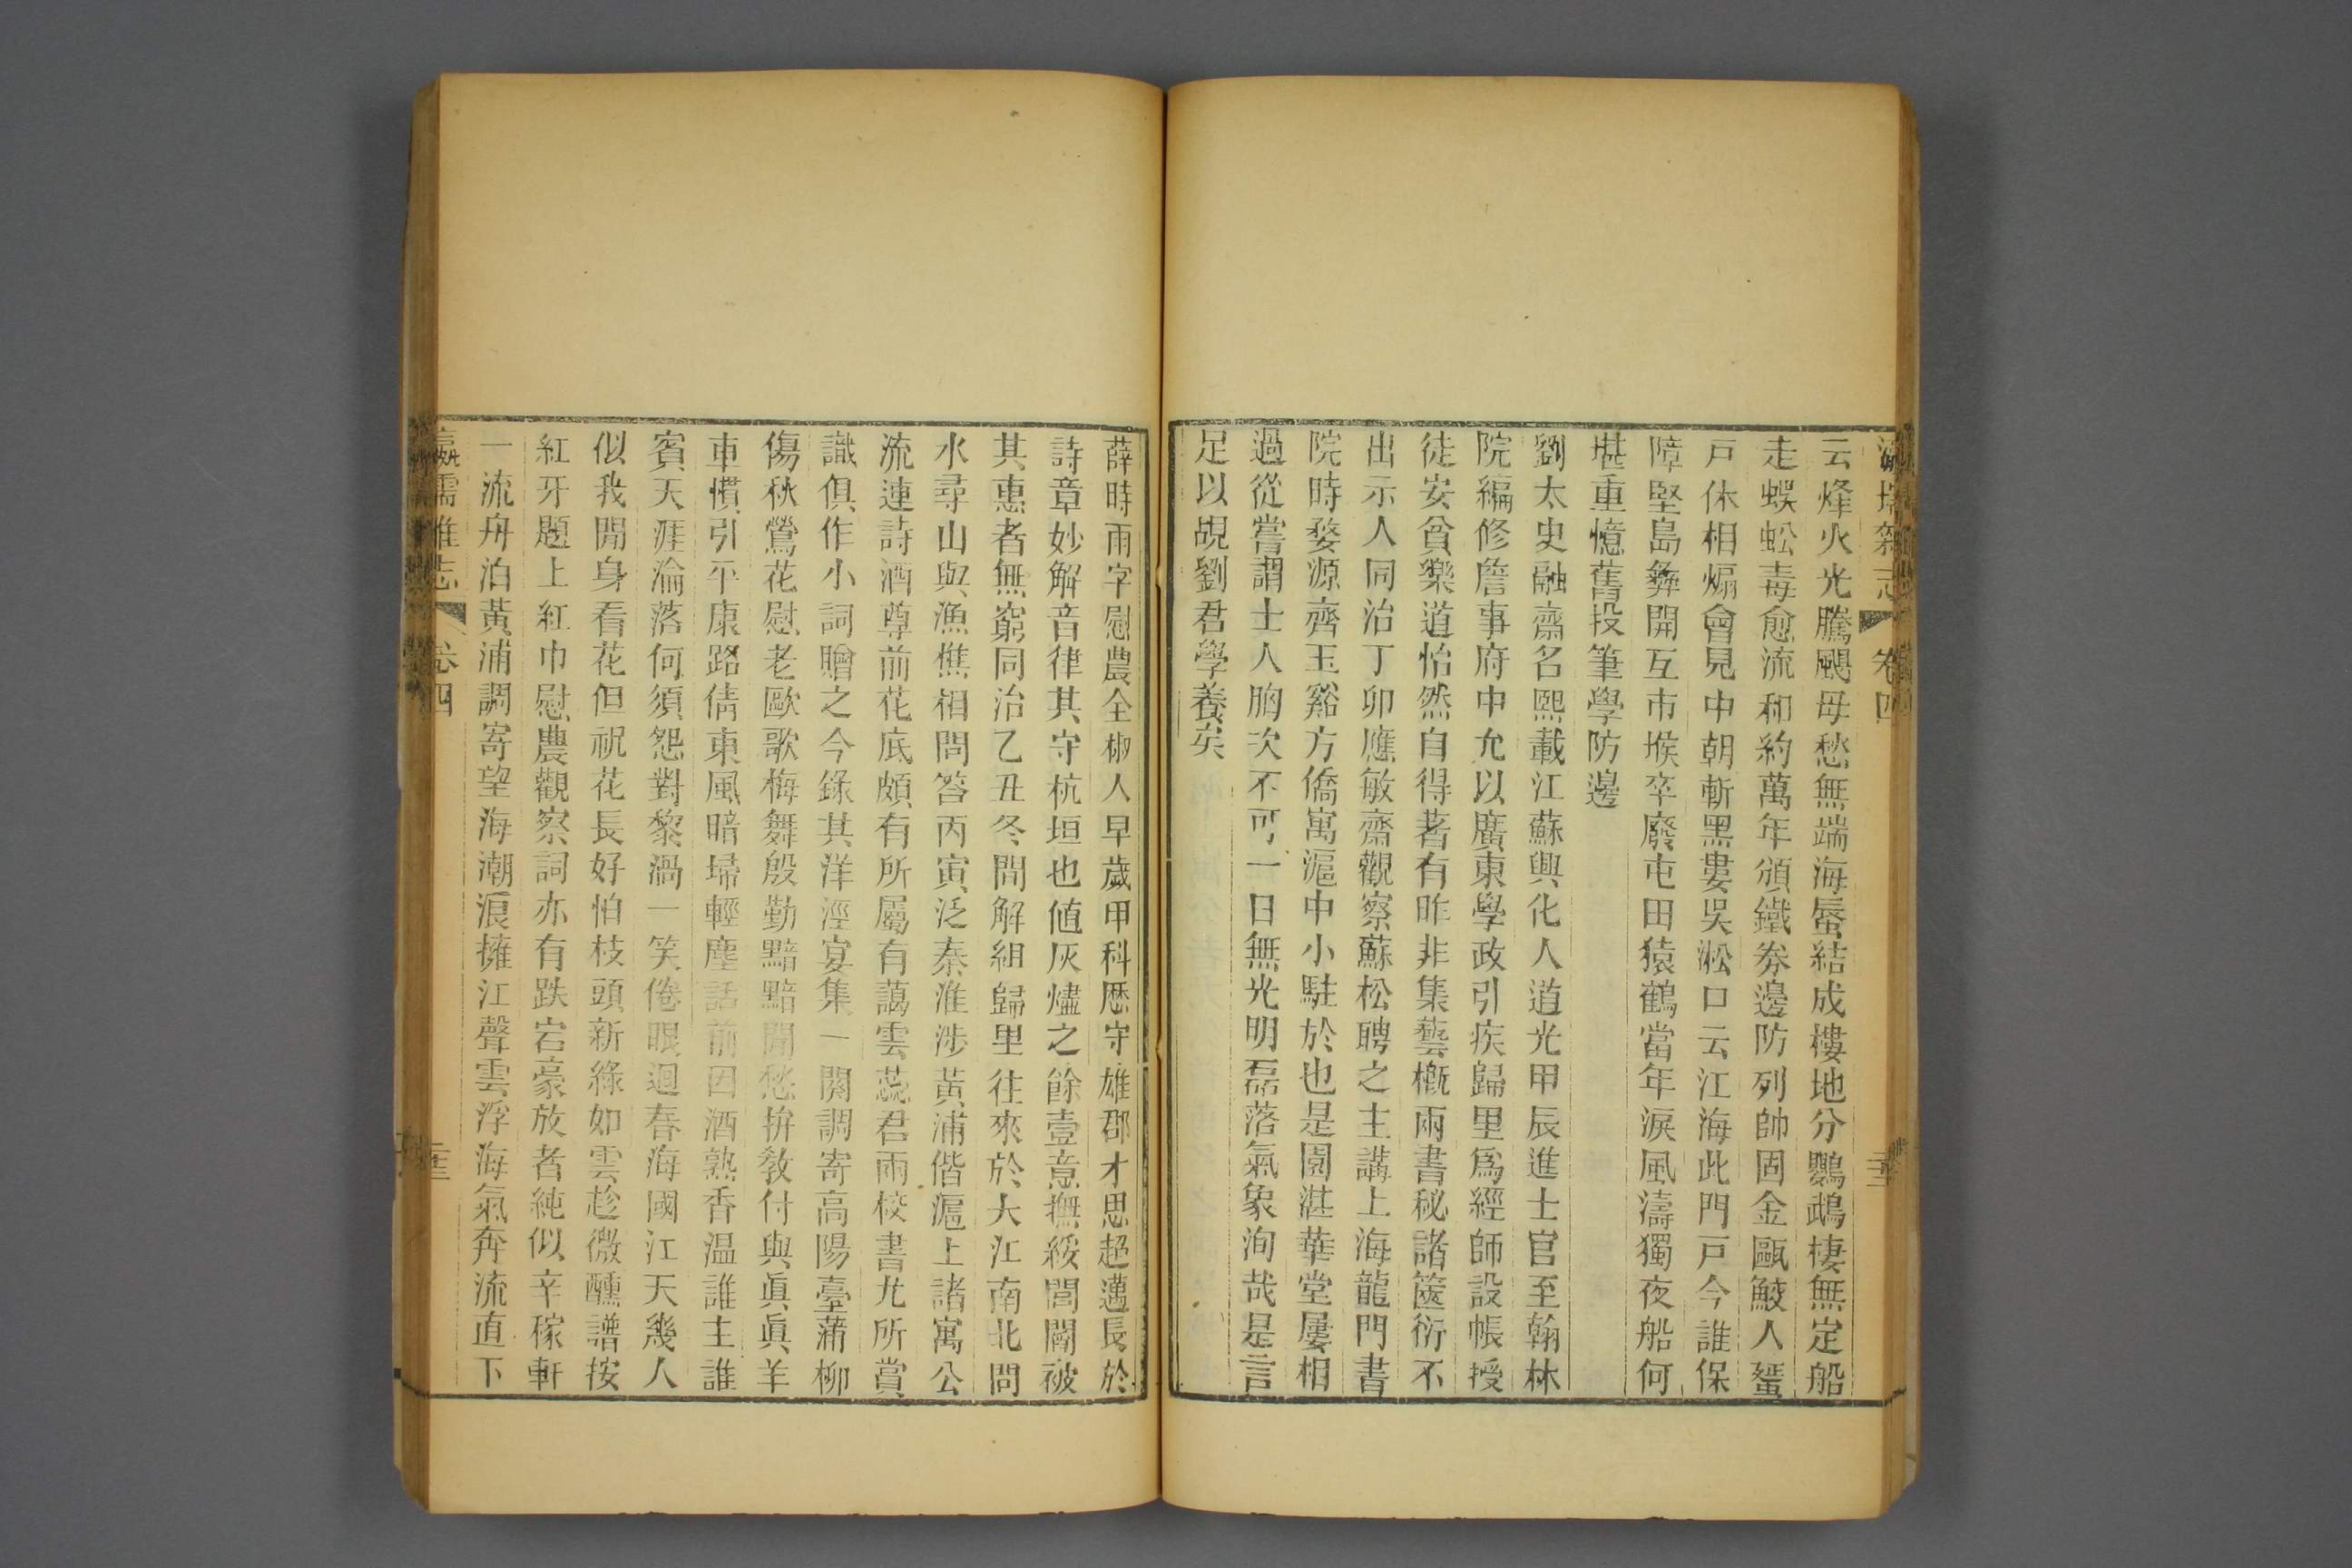 瀛壖雜志 卷四
云烽火光騰颶母愁無端海蜃結成樓地分鸚鵡棲無定船
走蜈蚣毒愈流和約萬年頒鐵券邊防列帥固金甌鮫人蜑
戶休相煽曾見中朝斬黑婁吳淞口云江海此門戸今誰保
障堅島彝開互市堠卒廢屯田猿鶴當年淚風濤獨夜船何
堪重憶舊投筆學防邊
劉太史融齋名熙載江蘇興化人道光甲辰進士官至翰林
院編修詹事府中允以廣東學政引疾歸里爲經師設帳授
徒安貧樂道怡然自得著有昨非集藝概兩書秘諸篋衍不
出示人同治丁卯應敏齋觀察蘇松聘之主講上海龍門書
院時婺源齊玉谿方僑寓滬中小駐於也是園湛華堂屢相
過從嘗謂士人胸次不可一日無光明磊落氣象洵哉是言
足以覘劉君學養矣
薛時雨字慰農全椒人早歲甲科歴守雄郡才思超邁長於
詩章妙解音律其守杭垣也値灰燼之餘壹意撫綏閭閻被
其惠者無窮同治乙丑冬間解組歸里往來於大江南北問
水尋山與漁樵相問答丙寅泛秦淮涉黃浦偕滬上諸寓公
流連詩酒尊前花底頗有所屬有藹雲蕊君兩校書尤所賞
識俱作小詞贈之今錄其洋涇宴集一闋調寄高陽臺蒲柳
傷秋鶯花慰老歐歌梅舞殷勤黯黯閒愁拚敎付與眞眞羊
車慣引平康路倩東風暗埽輕塵話前因酒熟香温誰主誰
賓天涯淪落何須怨對黎渦一笑倦眼迴春海國江天幾人
似我閒身看花但祝花長好怕枝頭新綠如雲趁微醺譜按
紅牙題上紅巾慰農觀察詞亦有跌宕豪放者純似辛稼軒
一流舟泊黃浦調寄望海潮浪擁江聲雲浮海氣奔流直下
瀛壖雜志 卷四